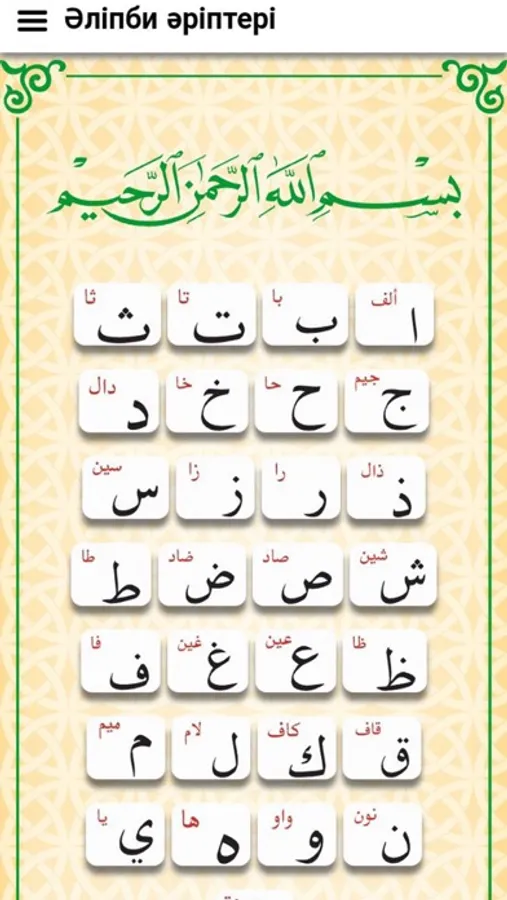 Әліпби әріптері
بِسْمِ اللَّهِ الرَّحْمَٰنِ الرَّحِيمِ
ألف ا با ب تا ت ثا ث
جيم ج حا ح خا خ دال د
ذال ذ را ر زا ز سين س
شين ش صاد ص ضاد ض طا ط
ظا ظ عين ع غين غ فا ف
قاف ق كاف ك لام ل ميم م
نون ن واو و ها ه يا ي